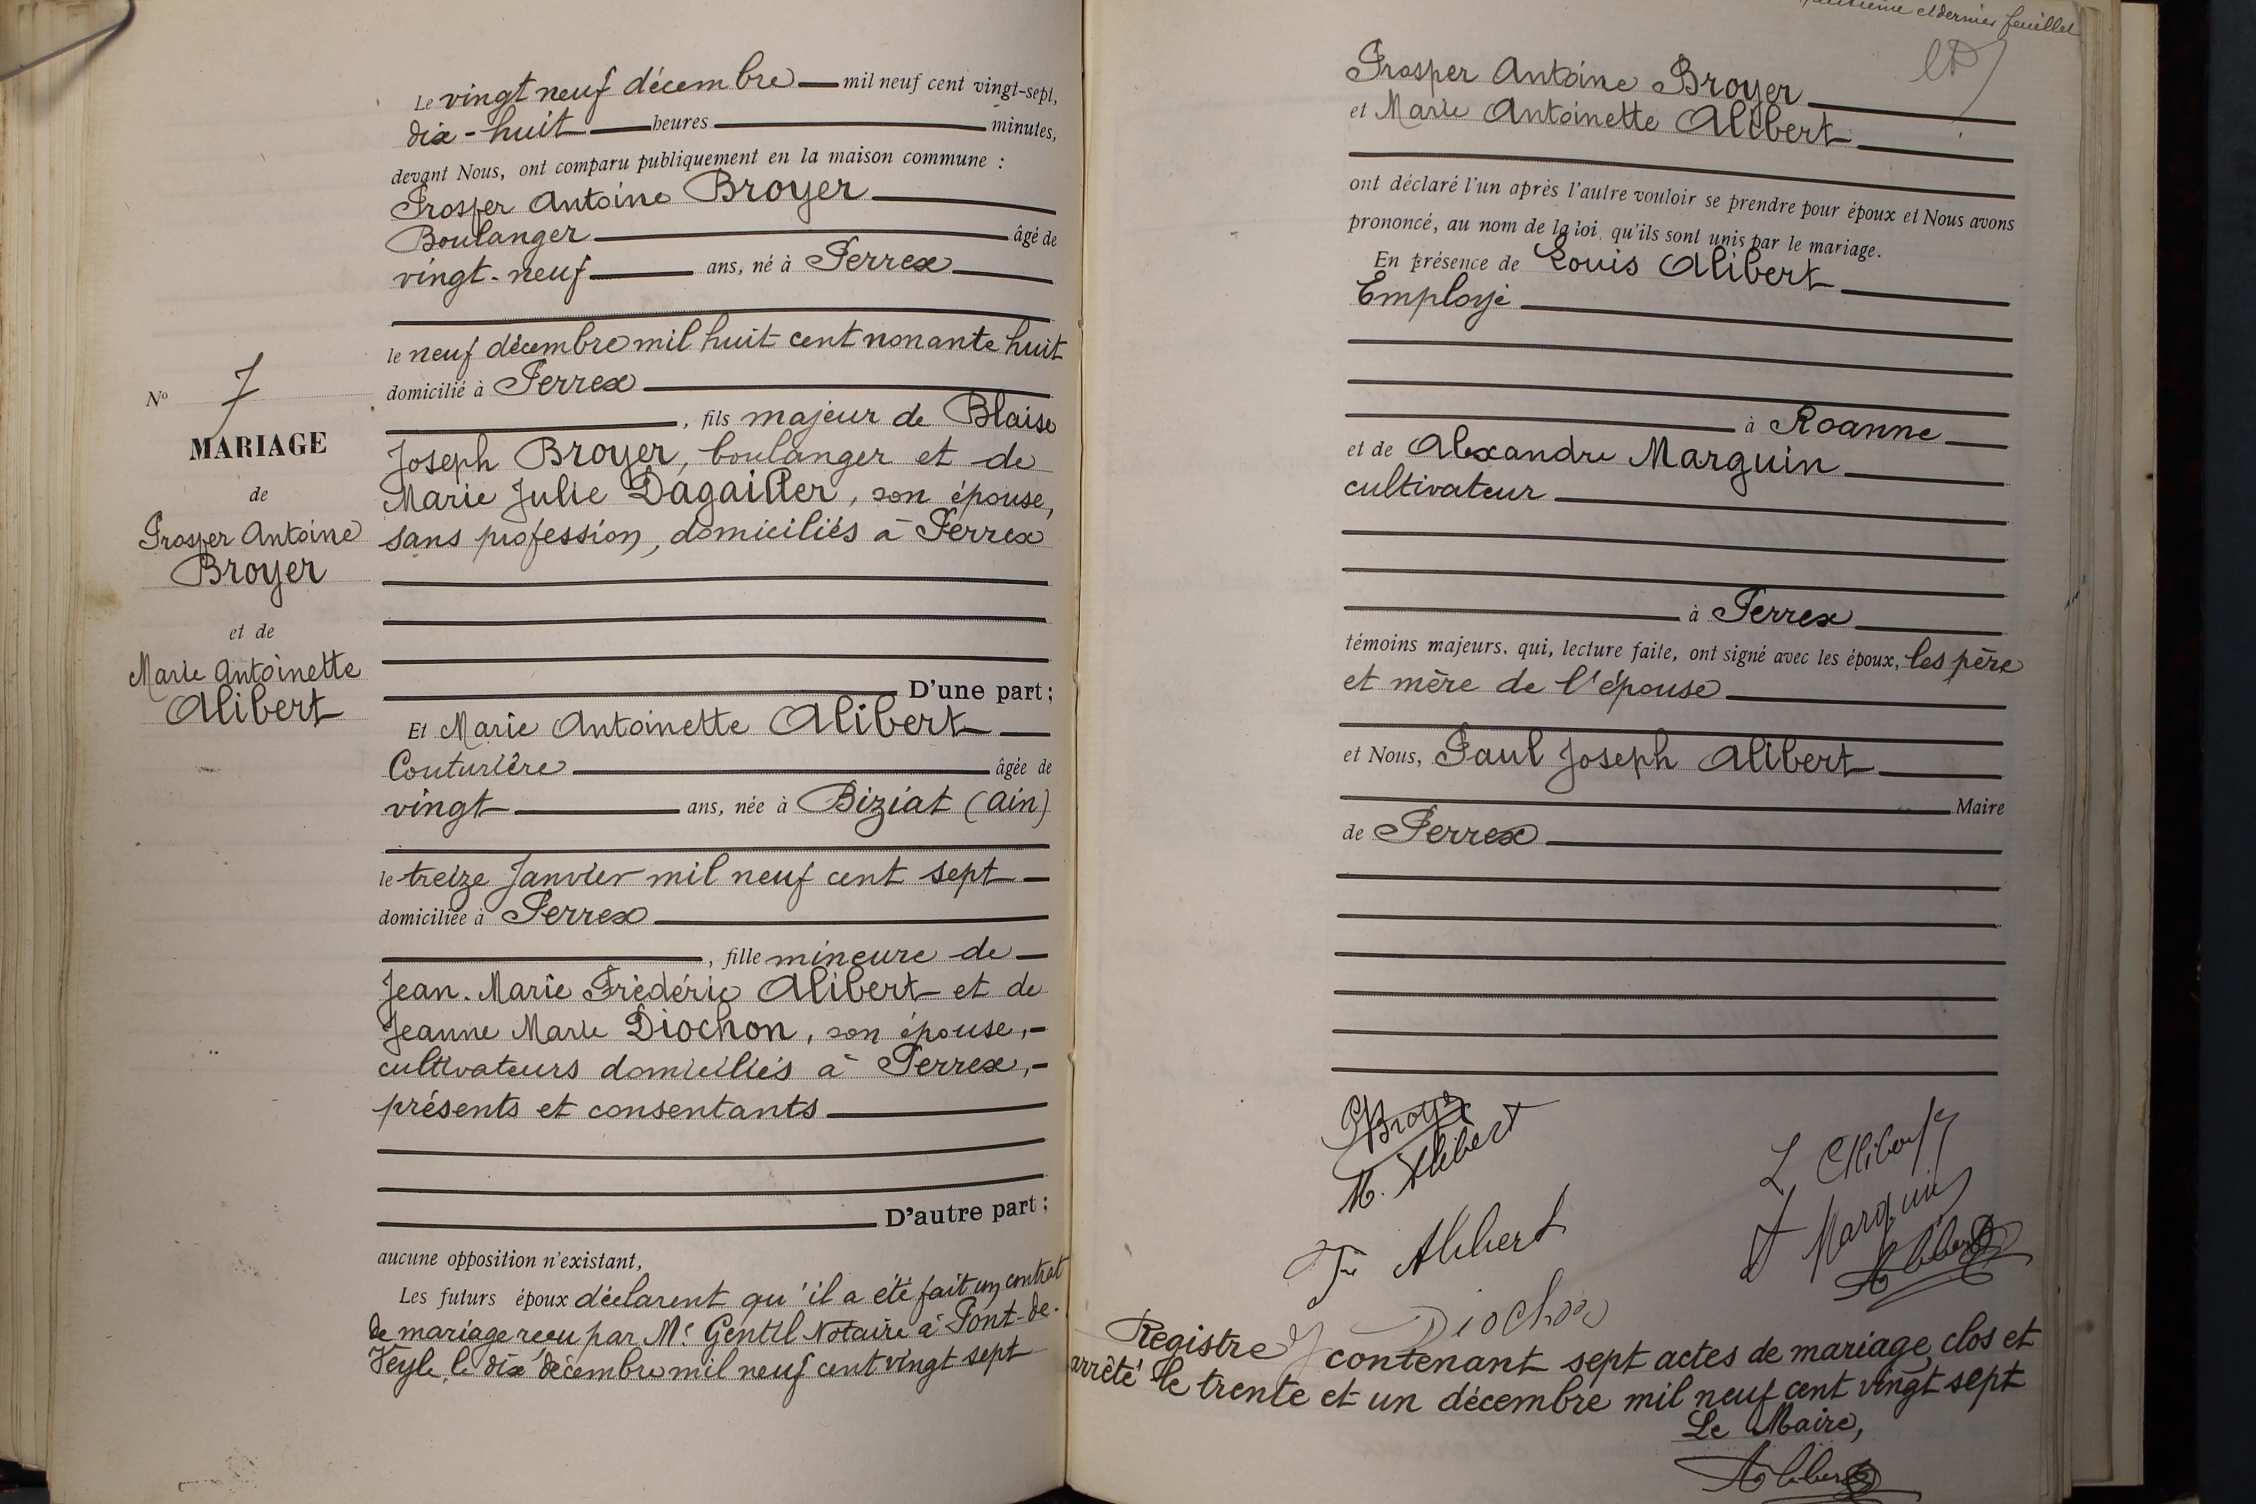 Le vingt neuf décembre mil neuf cent vingt-sept,
dix-huit heures minutes,
devant Nous, ont comparu publiquement en la maison commune :
Prosper Antoine Broyer
Boulanger âgé de
vingt-neuf ans, né à Perrex
le neuf décembre mil huit cent nonante huit
domicilié à Perrex
, fils majeur de Blaise
Joseph Broyer, boulanger et de
Marie Julie Dagallier, son épouse,
sans profession, domiciliés à Perrex
D'une part ;
Et Marie Antoinette Alibert
Couturière âgée de
vingt ans, née à Biziat (Ain)
le treize Janvier mil neuf cent sept
domiciliée à Perrex
, fille mineure de
Jean-Marie Frédéric Alibert et de
Jeanne Marie Diochon, son épouse,
cultivateurs domiciliés à Perrex,
présents et consentants
D'autre part ;
aucune opposition n'existant,
Les futurs époux déclarent qu'il a été fait un contrat
de mariage reçu par Me Gentil Notaire à Pont-de-
Veyle, le dix décembre mil neuf cent vingt sept
No 7
MARIAGE
de
Prosper Antoine
Broyer
et de
Marie Antoinette
Alibert
et dernier feuillet
Prosper Antoine Broyer
et Marie Antoinette Alibert
ont déclaré l'un après l'autre vouloir se prendre pour époux et Nous avons
prononcé, au nom de la loi, qu'ils sont unis par le mariage.
En présence de Louis Alibert
Employé
à Roanne
et de Alexandre Marguin
cultivateur
à Perrex
témoins majeurs, qui, lecture faite, ont signé avec les époux, les père
et mère de l'épouse
et Nous, Paul Joseph Alibert
Maire
de Perrex
PBroyer
M. Alibert
L Alibert
A Marguin
Alibert
Alibert
Diochon
Registre contenant sept actes de mariage clos et
arrêté le trente et un décembre mil neuf cent vingt sept
Le Maire,
Alibert